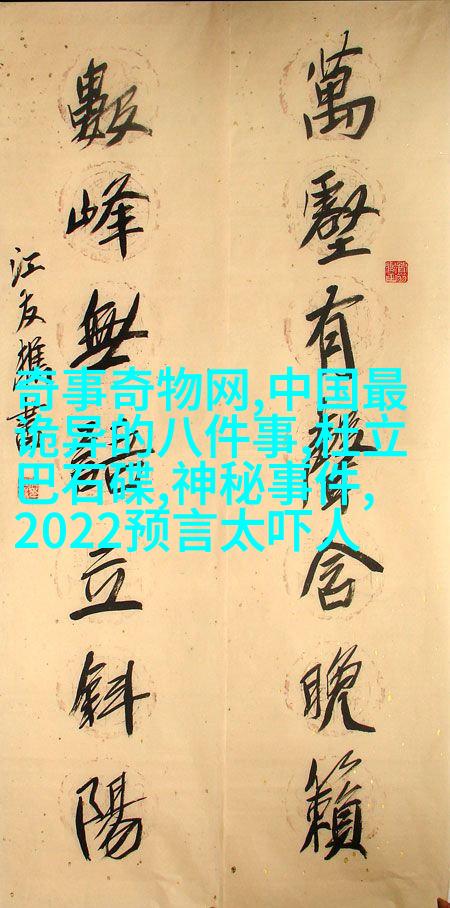 萬壑有聲含晚籟
數峰無語立斜陽
江友樵書
奇事奇物网,中国最
诡异的八件事,杜立
巴石碟,神秘事件,
2022预言太吓人